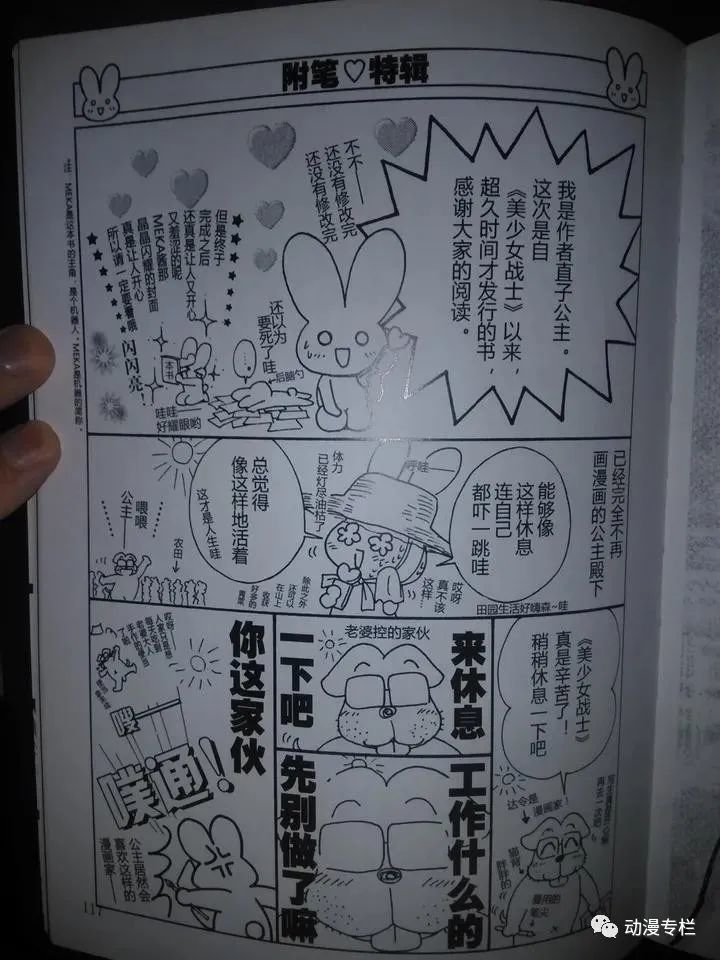 附笔♡特辑
我是作者直子公主。
这次是自
《美少女战士》以来，
超久时间才发行的书，
感谢大家的阅读。
不不——
还没有修改完
还没有修改完
还以为
要死了哇
后脑勺
……
但是终于
完成之后
还真是让人又开心
又羞涩的呢
MEKA酱那
晶晶闪耀的封面
真是让人开心
所以请一定要看喔
闪闪亮！
本书
哇哇
好耀眼哟
注：MEKA是这本书的主角，是个机器人。MEKA是机器的简称。
已经完全不再
画漫画的公主殿下
能够像
这样休息
连自己
都吓一跳哇
哎呀
真不该
这样…
田园生活好嗨森~哇
呼哇
体力
已经灯尽油枯了
除此之外
还可以
在山上
收获
好多的
总觉得
像这样地活着
这才是人生哇
喂喂
公主
农田
《美少女战士》
真是辛苦了！
稍稍休息一下吧
再去一次吧
达令是
漫画家！
猫背
胖胖的
量用的
笔尖
来休息
一下吧
老婆控的家伙
工作什么的
先别做了嘛
你这家伙
哎呀
人家只是想
每天吃到
老婆大人
手作的便当
嗖
噗通！
公主居然会
喜欢这样的
漫画家
117
动漫专栏